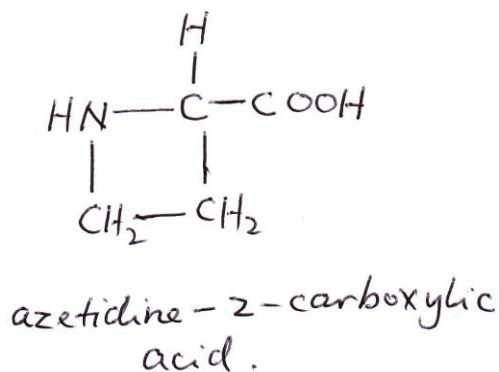 H
HN—C—COOH
CH₂—CH₂
azetidine-2-carboxylic
acid.